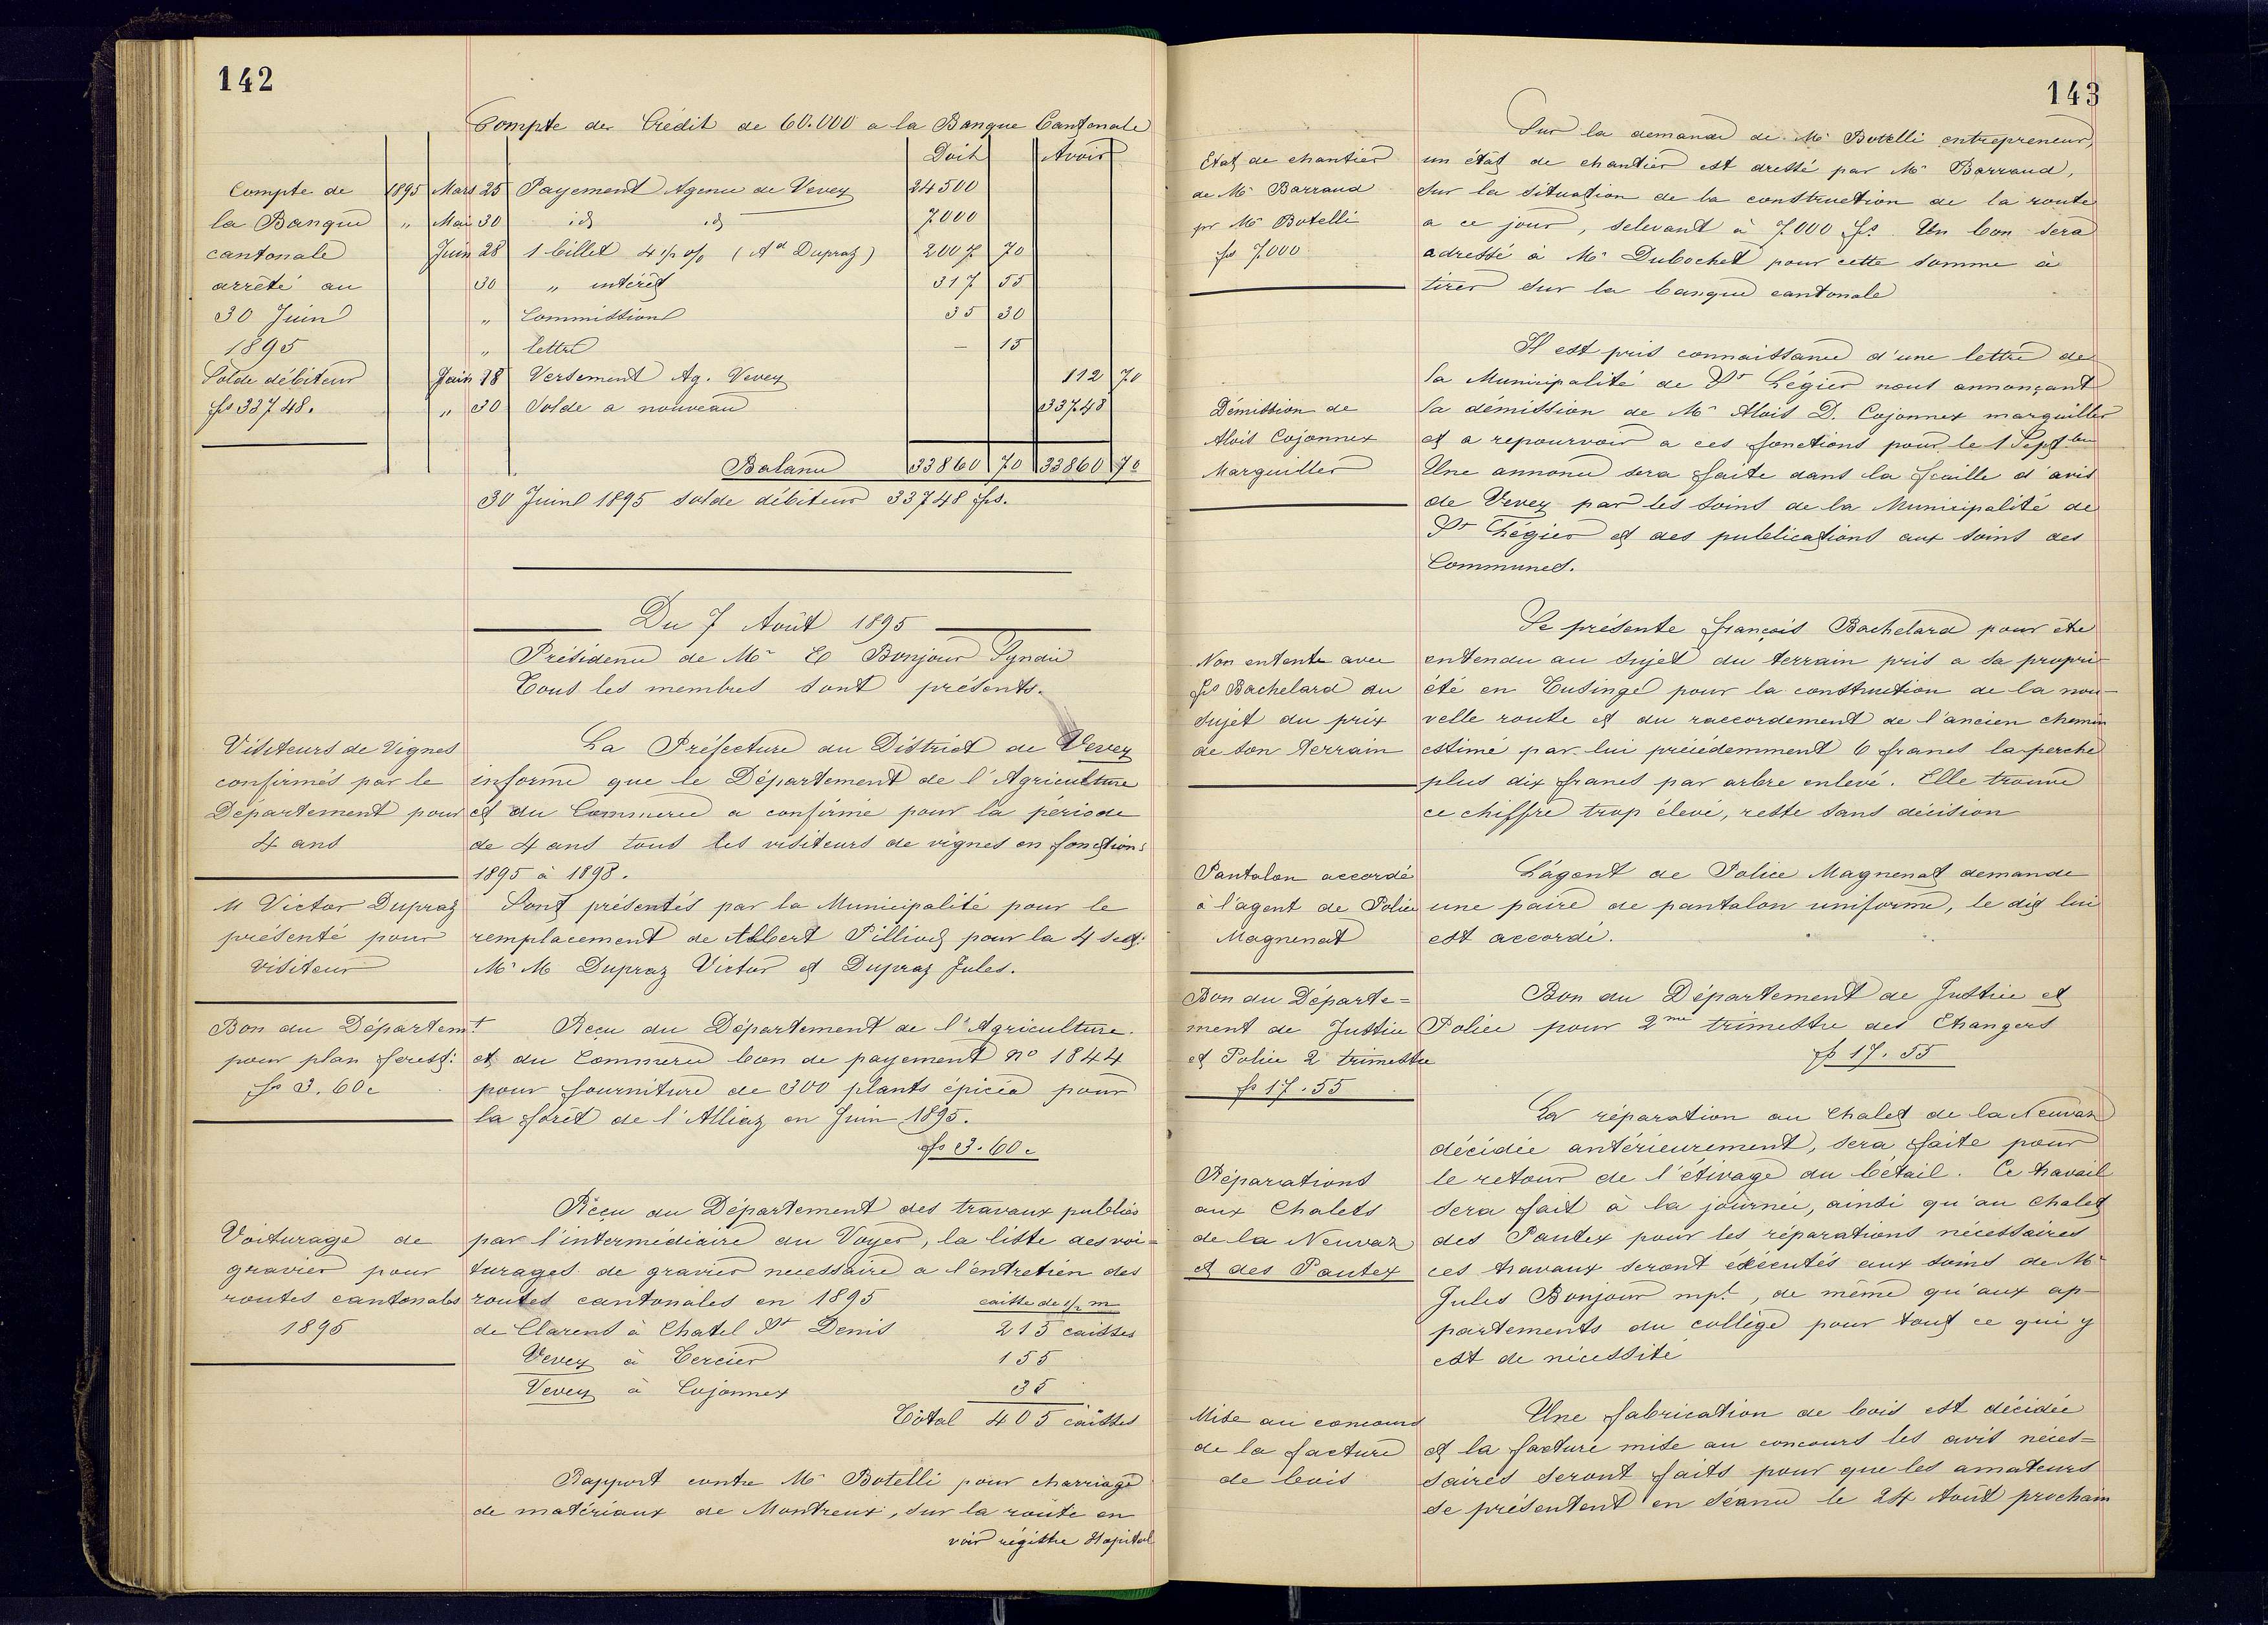 142
Compte de Crédit de 60.000 a la Banque Cantonale
Doit Avoir
Compte de
la Banque
cantonale
arrêté au
30 Juin
1895
Solde débiteur
frs 33748.
1895 Mars 25 Payement Agence de Vevey 24500
" Mai 30 id id 7000
Juin 28 1 billet 4 1/2 % (Ad Dupraz) 2007 70
30 " intérêt 317 55
" Commission 35 30
" lettre — 15
Juin 18 Versement Ag. Vevey 112 70
" 30 Solde a nouveau 33748
Balance 33860 70 33860 70
30 Juin 1895 solde débiteur 33748 frs.
Du 7 Août 1895
Présidence de Mr E Bonjour Syndic
Tous les membres sont présents.
Visiteurs de Vignes
confirmés par le
Département pour
4 ans
La Préfecture du District de Vevey
informe que le Département de l'Agriculture
et du Commerce a confirmé pour la période
de 4 ans tous les visiteurs de vignes en fonctions
1895 à 1898.
M Victor Dupraz
présenté pour
visiteur
Sont présentés par la Municipalité pour le
remplacement de Albert Pilliod pour la 4 sect:
Mr M Dupraz Victor et Dupraz Jules.
Bon du Départemt
pour plan forest:
frs 3.60c
Reçu du Département de l'Agriculture
et du Commerce bon de payement No 1844
pour fourniture de 300 plants épicéa pour
la forêt de l'Alliaz en Juin 1895.
frs 3.60c
Voiturage de
gravier pour
routes cantonales
1895
Reçu du Département des travaux publics
par l'intermédiaire du Voyer, la liste des voi=
turages de gravier necessaire a l'entretien des
routes cantonales en 1895 caisse de 1/2 m
de Clarens à Chatel St Denis 215 caisses
Vevey à Cercier 155
Vevey à Cojonnex 35
Total 405 caisses
Rapport contre Mr Botelli pour charriage
de matériaux de Montreux, sur la route en
voir régistre Hopital
143
Etat de chantier
de Mr Barraud
pr Mr Botelli
frs 7.000
Sur la demande de Mr Botelli entrepreneur,
un état de chantier est dressé par Mr Barraud,
sur la situation de la construction de la route
a ce jour, selevant à 7.000 frs. Un bon sera
adressé à Mr Dubochet pour cette somme à
tirer sur la banque cantonale
Démission de
Alois Cojonnex
Marguiller
Il est pris connaissance d'une lettre de
la Municipalité de St Légier nous annonçant
la démission de Mr Alois D. Cojonnex marguiller
et a repourvoir a ces fonctions pour le 1 Septbre
Une annonce sera faite dans la feuille d'avis
de Vevey par les soins de la Municipalité de
St Légier et des publications aux soins des
Communes.
Non entente avec
frs Bachelard au
sujet du prix
de son terrain
Se présente françois Bachelard pour être
entendu au sujet du terrain pris a sa propri-
été en Cusinge pour la construction de la nou-
velle route et du raccordement de l'ancien chemin
estimé par lui précédemment 6 francs la perche
plus dix francs par arbre enlevé. Elle trouve
ce chiffre trop élevé, reste sans décision
Pantalon accordé
à l'agent de Police
Magnenat
L'agent de Police Magnenat demande
une paire de pantalon uniforme, le dit lui
est accordé.
Bon du Départe=
ment de Justice
et Police 2 trimestre
frs 17.55
Bon du Département de Justice et
Police pour 2me trimestre des Etrangers
frs 17.55
Réparations
aux Chalets
de la Neuvaz
et des Pautex
La réparation au Chalet de la Neuvaz
décidée antérieurement, sera faite pour
le retour de l'étivage du bétail. Ce travail
sera fait à la journée, ainsi qu'au chalet
des Pautex pour les réparations nécessaires
ces travaux seront éxécutés aux soins de Mr
Jules Bonjour mpl, de même qu'aux ap-
partements du collège pour tout ce qui y
est de nécessité
Mise au concours
de la facture
de bois
Une fabrication de bois est décidée
et la facture mise au concours les avis néces=
saires seront faits pour que les amateurs
se présentent en séance le 24 Août prochain